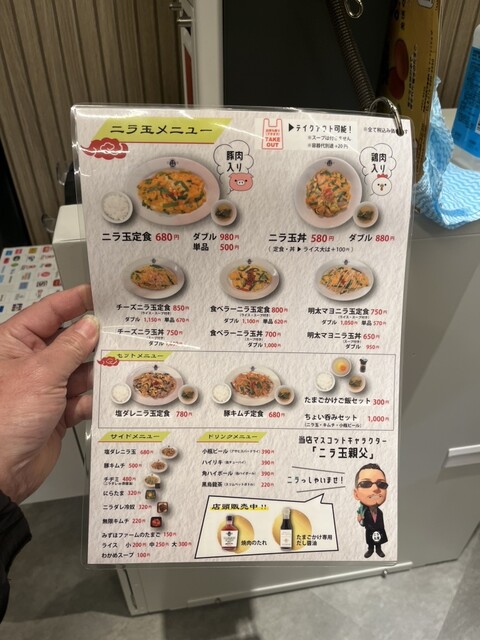 ニラ玉メニュー
お持ち帰り
できます
TAKE
OUT
▶テイクアウト可能！
※全て税込み価格です
※スープは付きません
※容器代別途+20円
豚肉
入り
鶏肉
入り
ニラ玉定食 680円
ダブル 980円
単品 500円
ニラ玉丼 580円 ダブル 880円
( 定食・丼 ▶ ライス大は+100円 )
チーズニラ玉定食 850円
(ライス・スープ付き)
ダブル 1,150円 単品 670円
チーズニラ玉丼 750円
食べラーニラ玉定食 800円
(ライス・スープ付き)
ダブル 1,100円 単品 620円
食べラーニラ玉丼 700円
ダブル 1,000円
明太マヨニラ玉定食 750円
(ライス・スープ付き)
ダブル 1,050円 単品 570円
明太マヨニラ玉丼 650円
ダブル 950円
セットメニュー
塩ダレニラ玉定食 780円
豚キムチ定食 680円
たまごかけご飯セット 300円
ちょい呑みセット 1,000円
(ニラ玉・キムチ・小瓶ビール)
サイドメニュー
塩ダレニラ玉 600円
豚キムチ 500円
チヂミ 480円
にらたま 320円
ニラダレ冷奴 320円
無限キムチ 220円
みずほファームのたまご 150円
ライス 小200円 中250円 大300円
わかめスープ 100円
ドリンクメニュー
小瓶ビール (アサヒスーパードライ) 390円
ハイリキ (缶チューハイ) 390円
角ハイボール (缶ハイボール) 390円
黒烏龍茶 220円
店頭販売中!!
焼肉のたれ
たまごかけ専用
だし醤油
当店マスコットキャラクター
「ニラ玉親父」
ニラっしゃいませ!